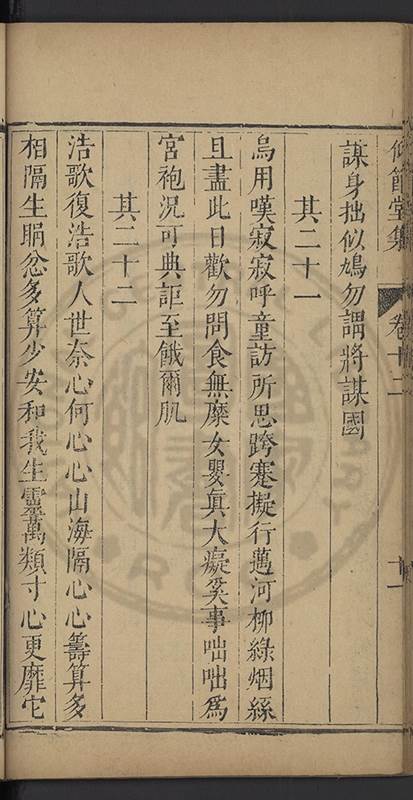 仰節堂集 卷十二 十一
謀身拙似鳩勿謂將謀國
其二十一
烏用嘆寂寂呼童訪所思跨蹇擬行邁河柳綠烟絲
且盡此日歡勿問食無糜女嬃真大癡奚事咄咄為
宮袍況可典詎至餓爾肌
其二十二
浩歌復浩歌人世奈心何心心山海隔心心籌算多
相隔生䀏忿多算少安和我生靈萬類寸心更靡它